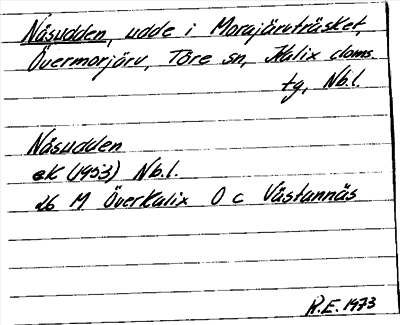 Näsudden, udde i Morajärvträsket,
Övermorjärv, Töre sn, Kalix doms.
tg, Nb.l.
Näsudden
ek (1953) Nb.l.
26 M Överkalix O c Västannäs
R.E. 1973